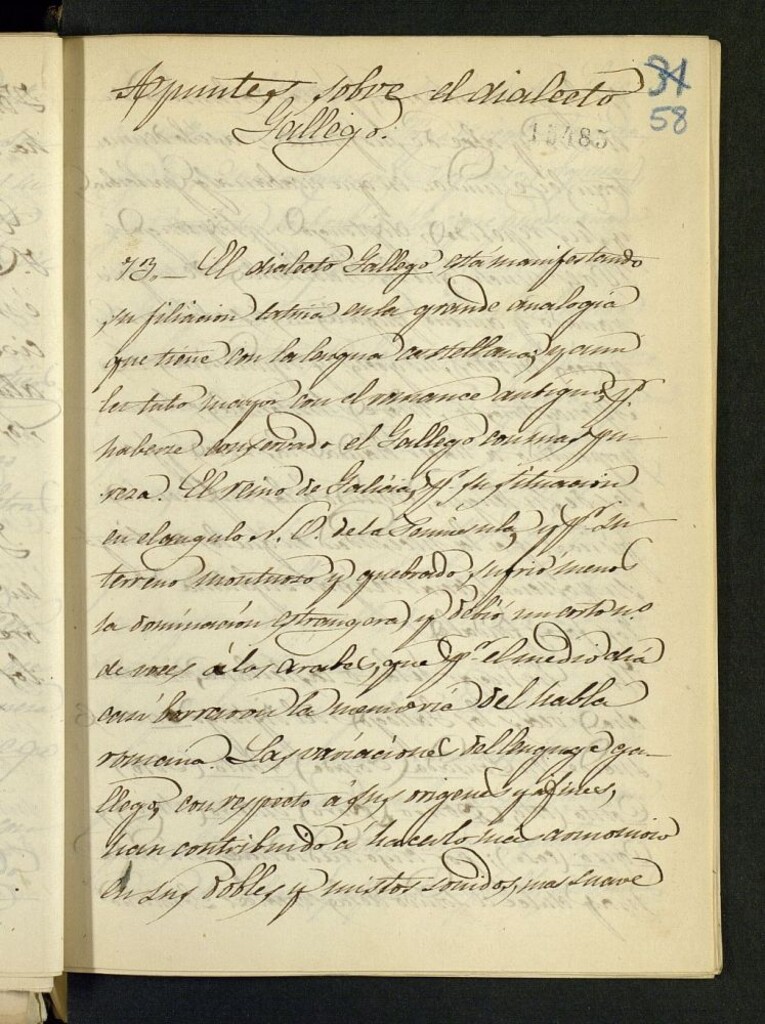 Apuntes sobre el dialecto
Gallego.
34
58
15485
73.— El dialecto Gallego está manifestando
su filiacion latina en la grande analogía
que tiene con la lengua castellana, y aun
la tubo mayor con el romance antiguo, pr.
haberse conservado el Gallego con mas pu-
reza. El reino de Galicia, pr. su situacion
en el angulo N. O. de la Peninsula, y pr. su
terreno montuoso y quebrado, sufrió menos
la dominación estrangera, y debió un corto no.
de voces á los arabes, que pr. el medio dia
casi borraron la memoria del habla
romana. Las variaciones del lenguage ga-
llego, con respecto á sus origenes y afines,
han contribuido á hacerlo mas armonioso
en sus dobles y mistos sonidos, mas suave